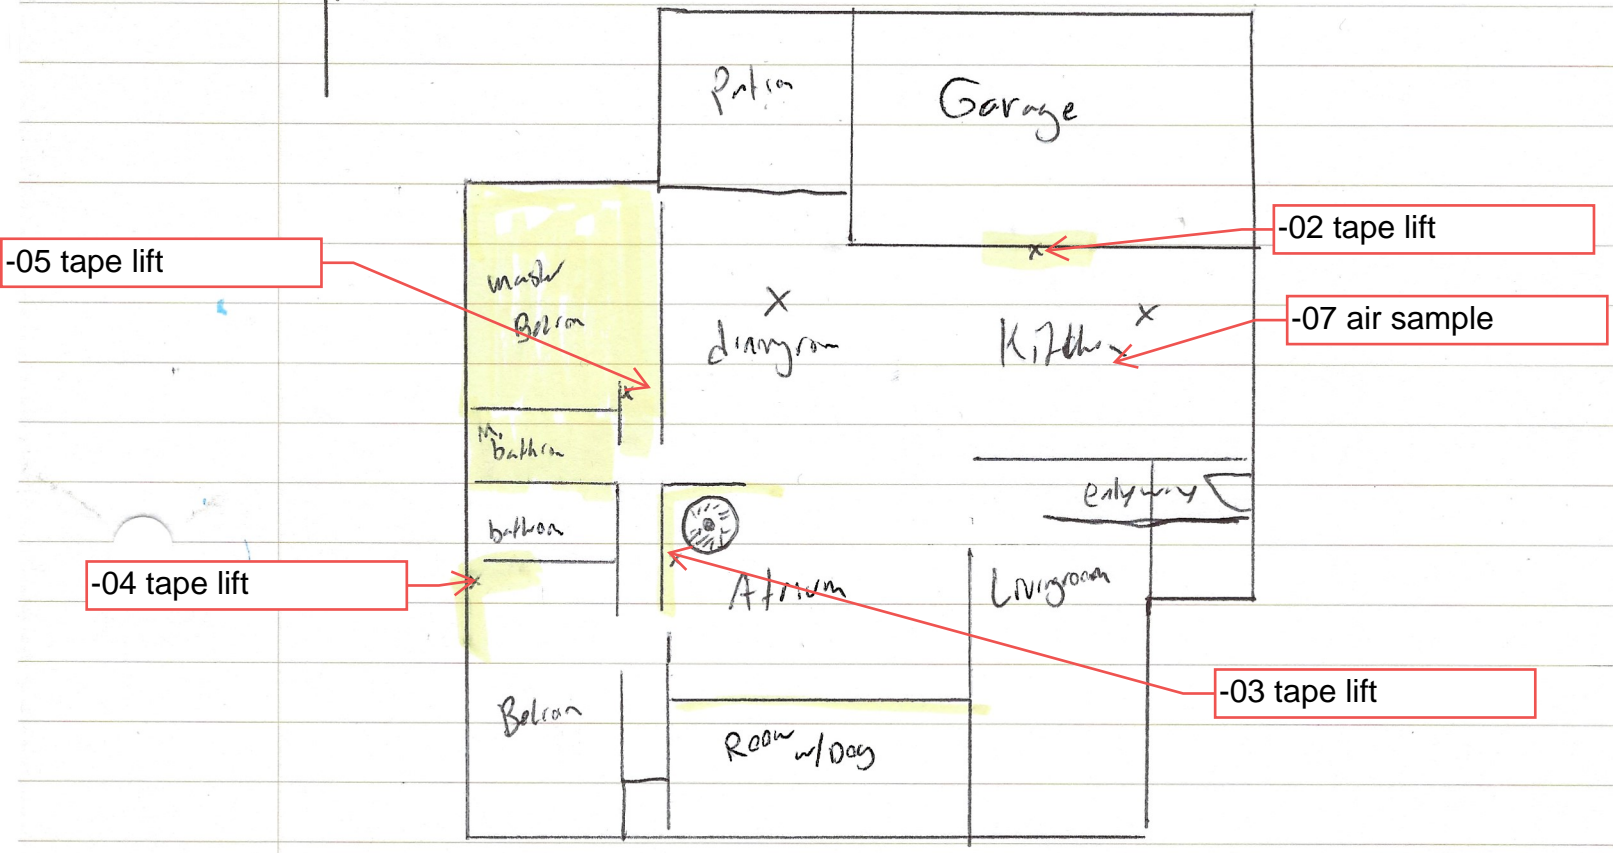 Garage
-02 tape lift
-05 tape lift
master
Bedroom
X
X
-07 air sample
diningroom
Kitchen
M.
bathroom
entryway
bathroom
-04 tape lift
Atrium
Livingroom
-03 tape lift
Bedroom
Room
w/Dog